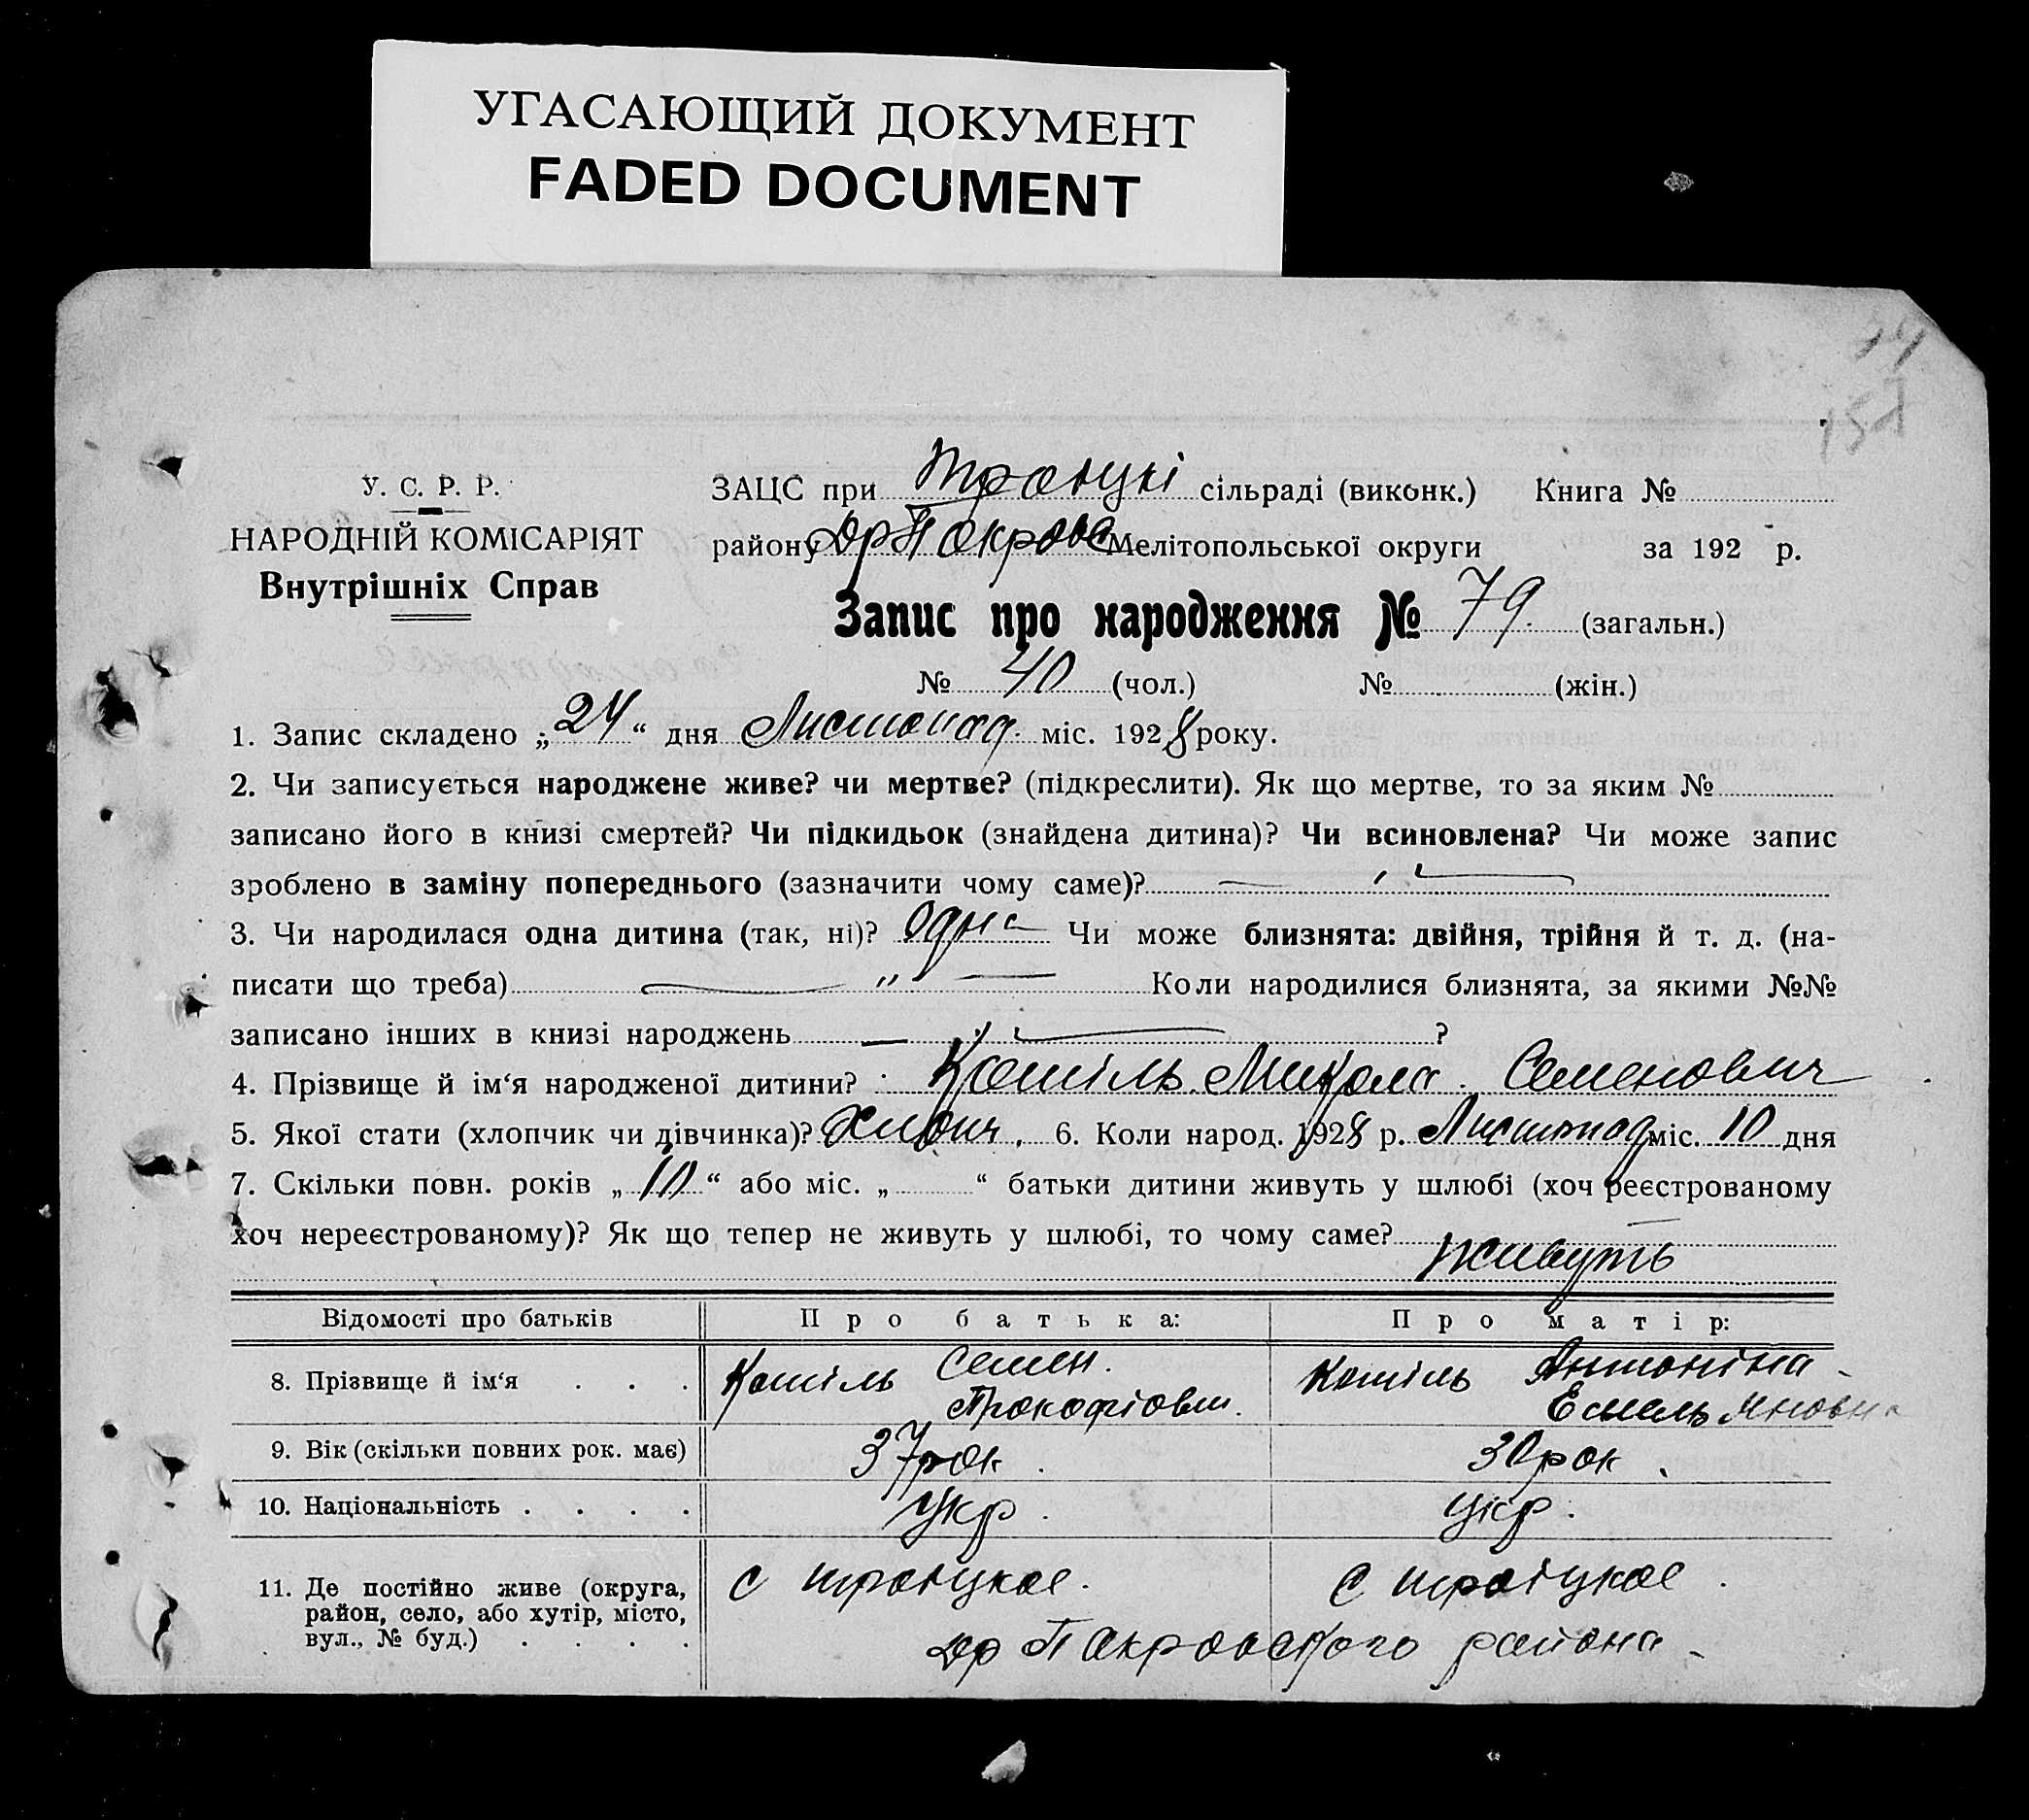 УГАСАЮЩИЙ ДОКУМЕНТ
FADED DOCUMENT
У. С. Р. Р.
НАРОДНІЙ КОМІСАРІЯТ
Внутрішніх Справ
ЗАЦС при Троіцкі сільраді (виконк.) Книга №
району Мелітопольської округи за 192 р.
Запис про народження № 79. (загальн.)
№ 40 (чол.) № (жін.)
1. Запис складено „24“ дня Листопад. міс. 1928 року.
2. Чи записується народжене живе? чи мертве? (підкреслити). Як що мертве, то за яким №
записано його в книзі смертей? Чи підкидьок (знайдена дитина)? Чи всиновлена? Чи може запис
зроблено в заміну попереднього (зазначити чому саме)?
3. Чи народилася одна дитина (так, ні)? Одна Чи може близнята: двійня, трійня й т. д. (на-
писати що треба) Коли народилися близнята, за якими №№
записано інших в книзі народжень ?
4. Прізвище й ім‘я народженої дитини? Кошіль Микола Семенович
5. Якої стати (хлопчик чи дівчинка)? 6. Коли народ. 1928 р. Листопад міс. 10 дня
7. Скільки повн. років „10“ або міс. „ “ батьки дитини живуть у шлюбі (хоч реєстрованому
хоч нереєстрованому)? Як що тепер не живуть у шлюбі, то чому саме?
живуть
Відомості про батьків Про батька: Про матір:
8. Прізвище й ім‘я . . . Кошіль Семен. Прокофіович. Кошіль Антоніна Емельяновна
9. Вік (скільки повних рок. має) 37 рок. 30 рок.
10. Національність . . . . Укр. Укр.
11. Де постійно живе (округа, с троіцкое. с троіцкое.
район, село, або хутір, місто,
вул., № буд.) . . . . Др Покровского района